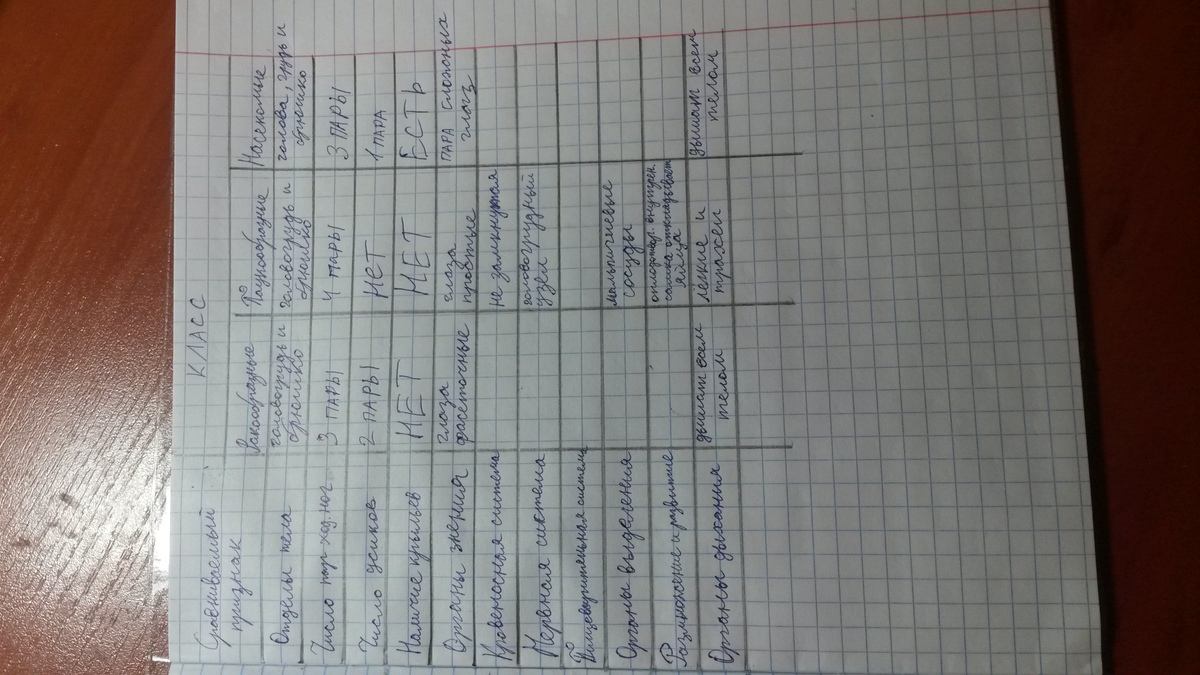 КЛАСС
Сравниваемый
признак
Ракообразные
Паукообразные
Насекомые
Отделы тела
головогрудь и
брюшко
головогрудь и
брюшко
голова, грудь и
брюшко
Число пар ход.ног
3 ПАРЫ
4 ПАРЫ
3 ПАРЫ
Число усиков
2 ПАРЫ
НЕТ
1 ПАРА
Наличие крыльев
НЕТ
НЕТ
ЕСТЬ
Органы зрения
глаза
фасеточные
глаза
простые
ПАРА сложных
глаз
Кровеносная система
не замкнутая
Нервная система
головогрудный
узел
Пищеварительная система
Органы выделения
мальпигиевые
сосуды
Размножение и развитие
оплодотвор. внутрен
самка откладывает
яйца
Органы дыхания
дышат всем
телом
легкие и
трахеи
дышат всем
телом